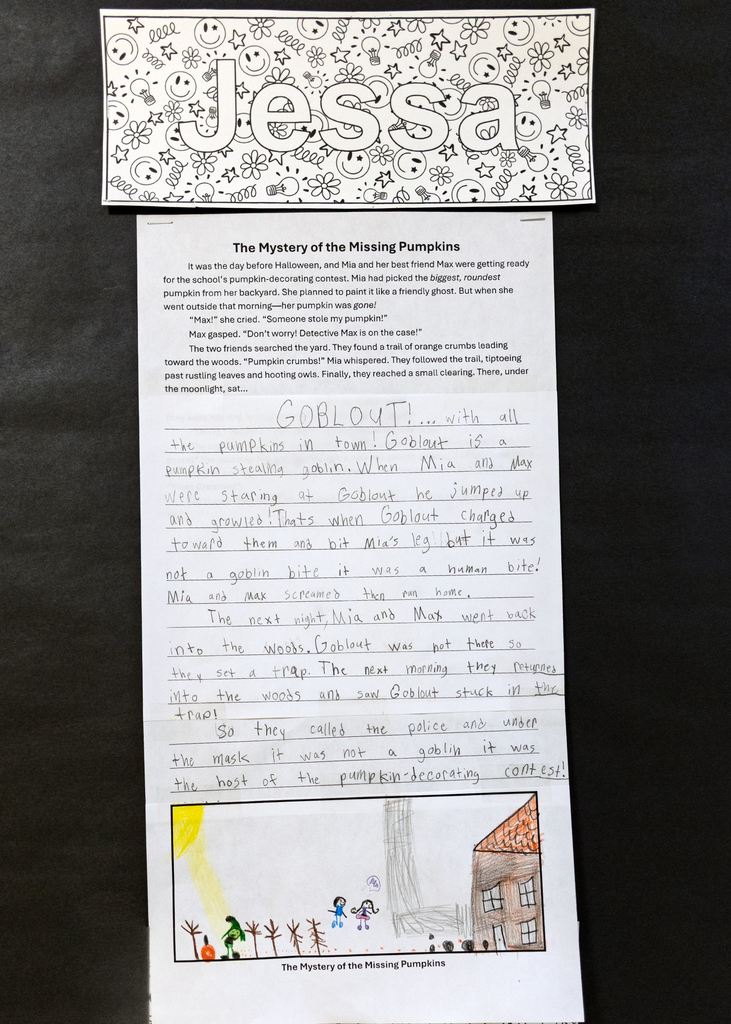 Jessa
The Mystery of the Missing Pumpkins
It was the day before Halloween, and Mia and her best friend Max were getting ready
for the school's pumpkin-decorating contest. Mia had picked the biggest, roundest
pumpkin from her backyard. She planned to paint it like a friendly ghost. But when she
went outside that morning—her pumpkin was gone!
"Max!" she cried. "Someone stole my pumpkin!"
Max gasped. "Don't worry! Detective Max is on the case!"
The two friends searched the yard. They found a trail of orange crumbs leading
toward the woods. "Pumpkin crumbs!" Mia whispered. They followed the trail, tiptoeing
past rustling leaves and hooting owls. Finally, they reached a small clearing. There, under
the moonlight, sat...
GOBLOUT!... with all
the pumpkins in town! Goblout is a
pumpkin stealing goblin. When Mia and Max
were staring at Goblout he jumped up
and growled! Thats when Goblout charged
toward them and bit Mia's leg but it was
not a goblin bite it was a human bite!
Mia and Max screamed then ran home.
The next night, Mia and Max went back
into the woods. Goblout was not there so
they set a trap. The next morning they returned
into the woods and saw Goblout stuck in the
trap!
So they called the police and under
the mask it was not a goblin it was
the host of the pumpkin-decorating contest!
The Mystery of the Missing Pumpkins